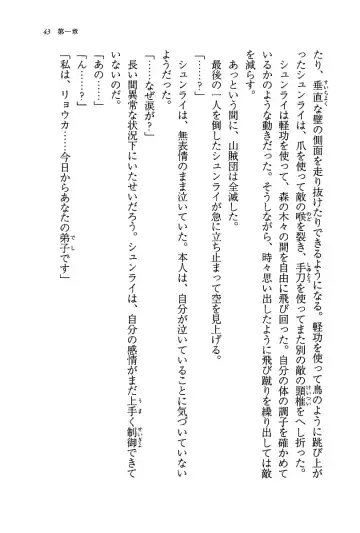 43　第一章
たり、垂直な壁の側面を走り抜けたりできるようになる。軽功を使って鳥のように跳び上が
ったシュンライは、爪を使って敵の喉を裂き、手刀を使ってまた別の敵の頸椎をへし折った。
シュンライは軽功を使って、森の木々の間を自由に飛び回った。自分の体の調子を確かめて
いるかのような動きだった。そうしながら、時々思い出したように飛び蹴りを繰り出しては敵
を減らす。
あっという間に、山賊団は全滅した。
最後の一人を倒したシュンライが急に立ち止まって空を見上げる。
「……?」
シュンライは、無表情のまま泣いていた。本人は、自分が泣いていることに気づいていない
ようだった。
「……なぜ涙が?」
長い間異常な状況下にいたせいだろう。シュンライは、自分の感情がまだ上手く制御できて
いないのだ。
「あの……」
「ん……?」
「私は、リョウカ……今日からあなたの弟子です」